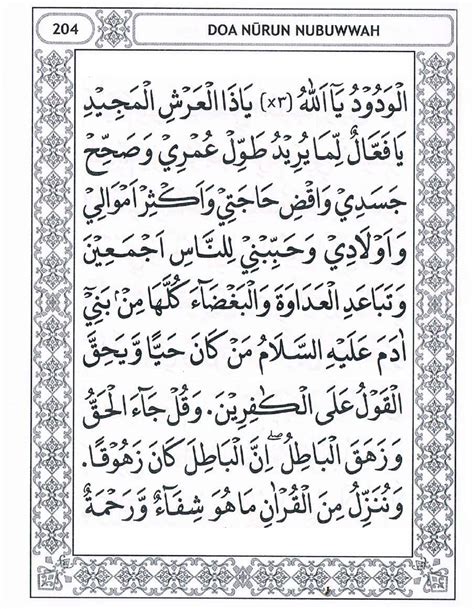 204
DOA NŪRUN NUBUWWAH
الْوَدُوْدُ يَآ اَللهُ (×٣) يَاذَا الْعَرْشِ الْمَجِيْدِ
يَا فَعَّالٌ لِّمَا يُرِيْدُ طَوِّلْ عُمْرِيْ وَصَحِّحْ
جَسَدِيْ وَاقْضِ حَاجَتِيْ وَاَكْثِرْ اَمْوَالِيْ
وَاَوْلَادِيْ وَحَبِّبْنِيْ لِلنَّاسِ اَجْمَعِيْنَ
وَتَبَاعَدِ الْعَدَاوَةَ وَالْبَغْضَآءَ كُلَّهَا مِنْۢ بَنِيْٓ
اٰدَمَ عَلَيْهِ السَّلَامُ مَنْ كَانَ حَيًّا وَّيَحِقَّ
الْقَوْلُ عَلَى الْكٰفِرِيْنَ. وَقُلْ جَآءَ الْحَقُّ
وَزَهَقَ الْبَاطِلُ ۖ اِنَّ الْبَاطِلَ كَانَ زَهُوْقًا.
وَنُنَزِّلُ مِنَ الْقُرْاٰنِ مَا هُوَ شِفَآءٌ وَّرَحْمَةٌ